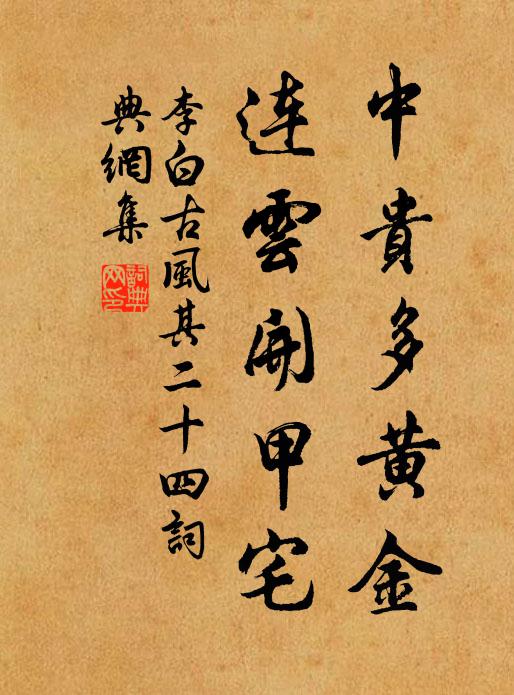 中貴多黃金
連雲開甲宅
李白古風其二十四詞
典網集
詞典
网印